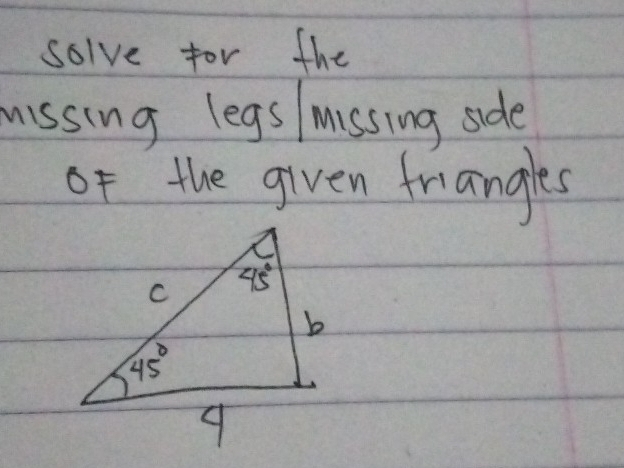 solve for the
missing legs/missing side
OF the given triangles
45°
c
b
45°